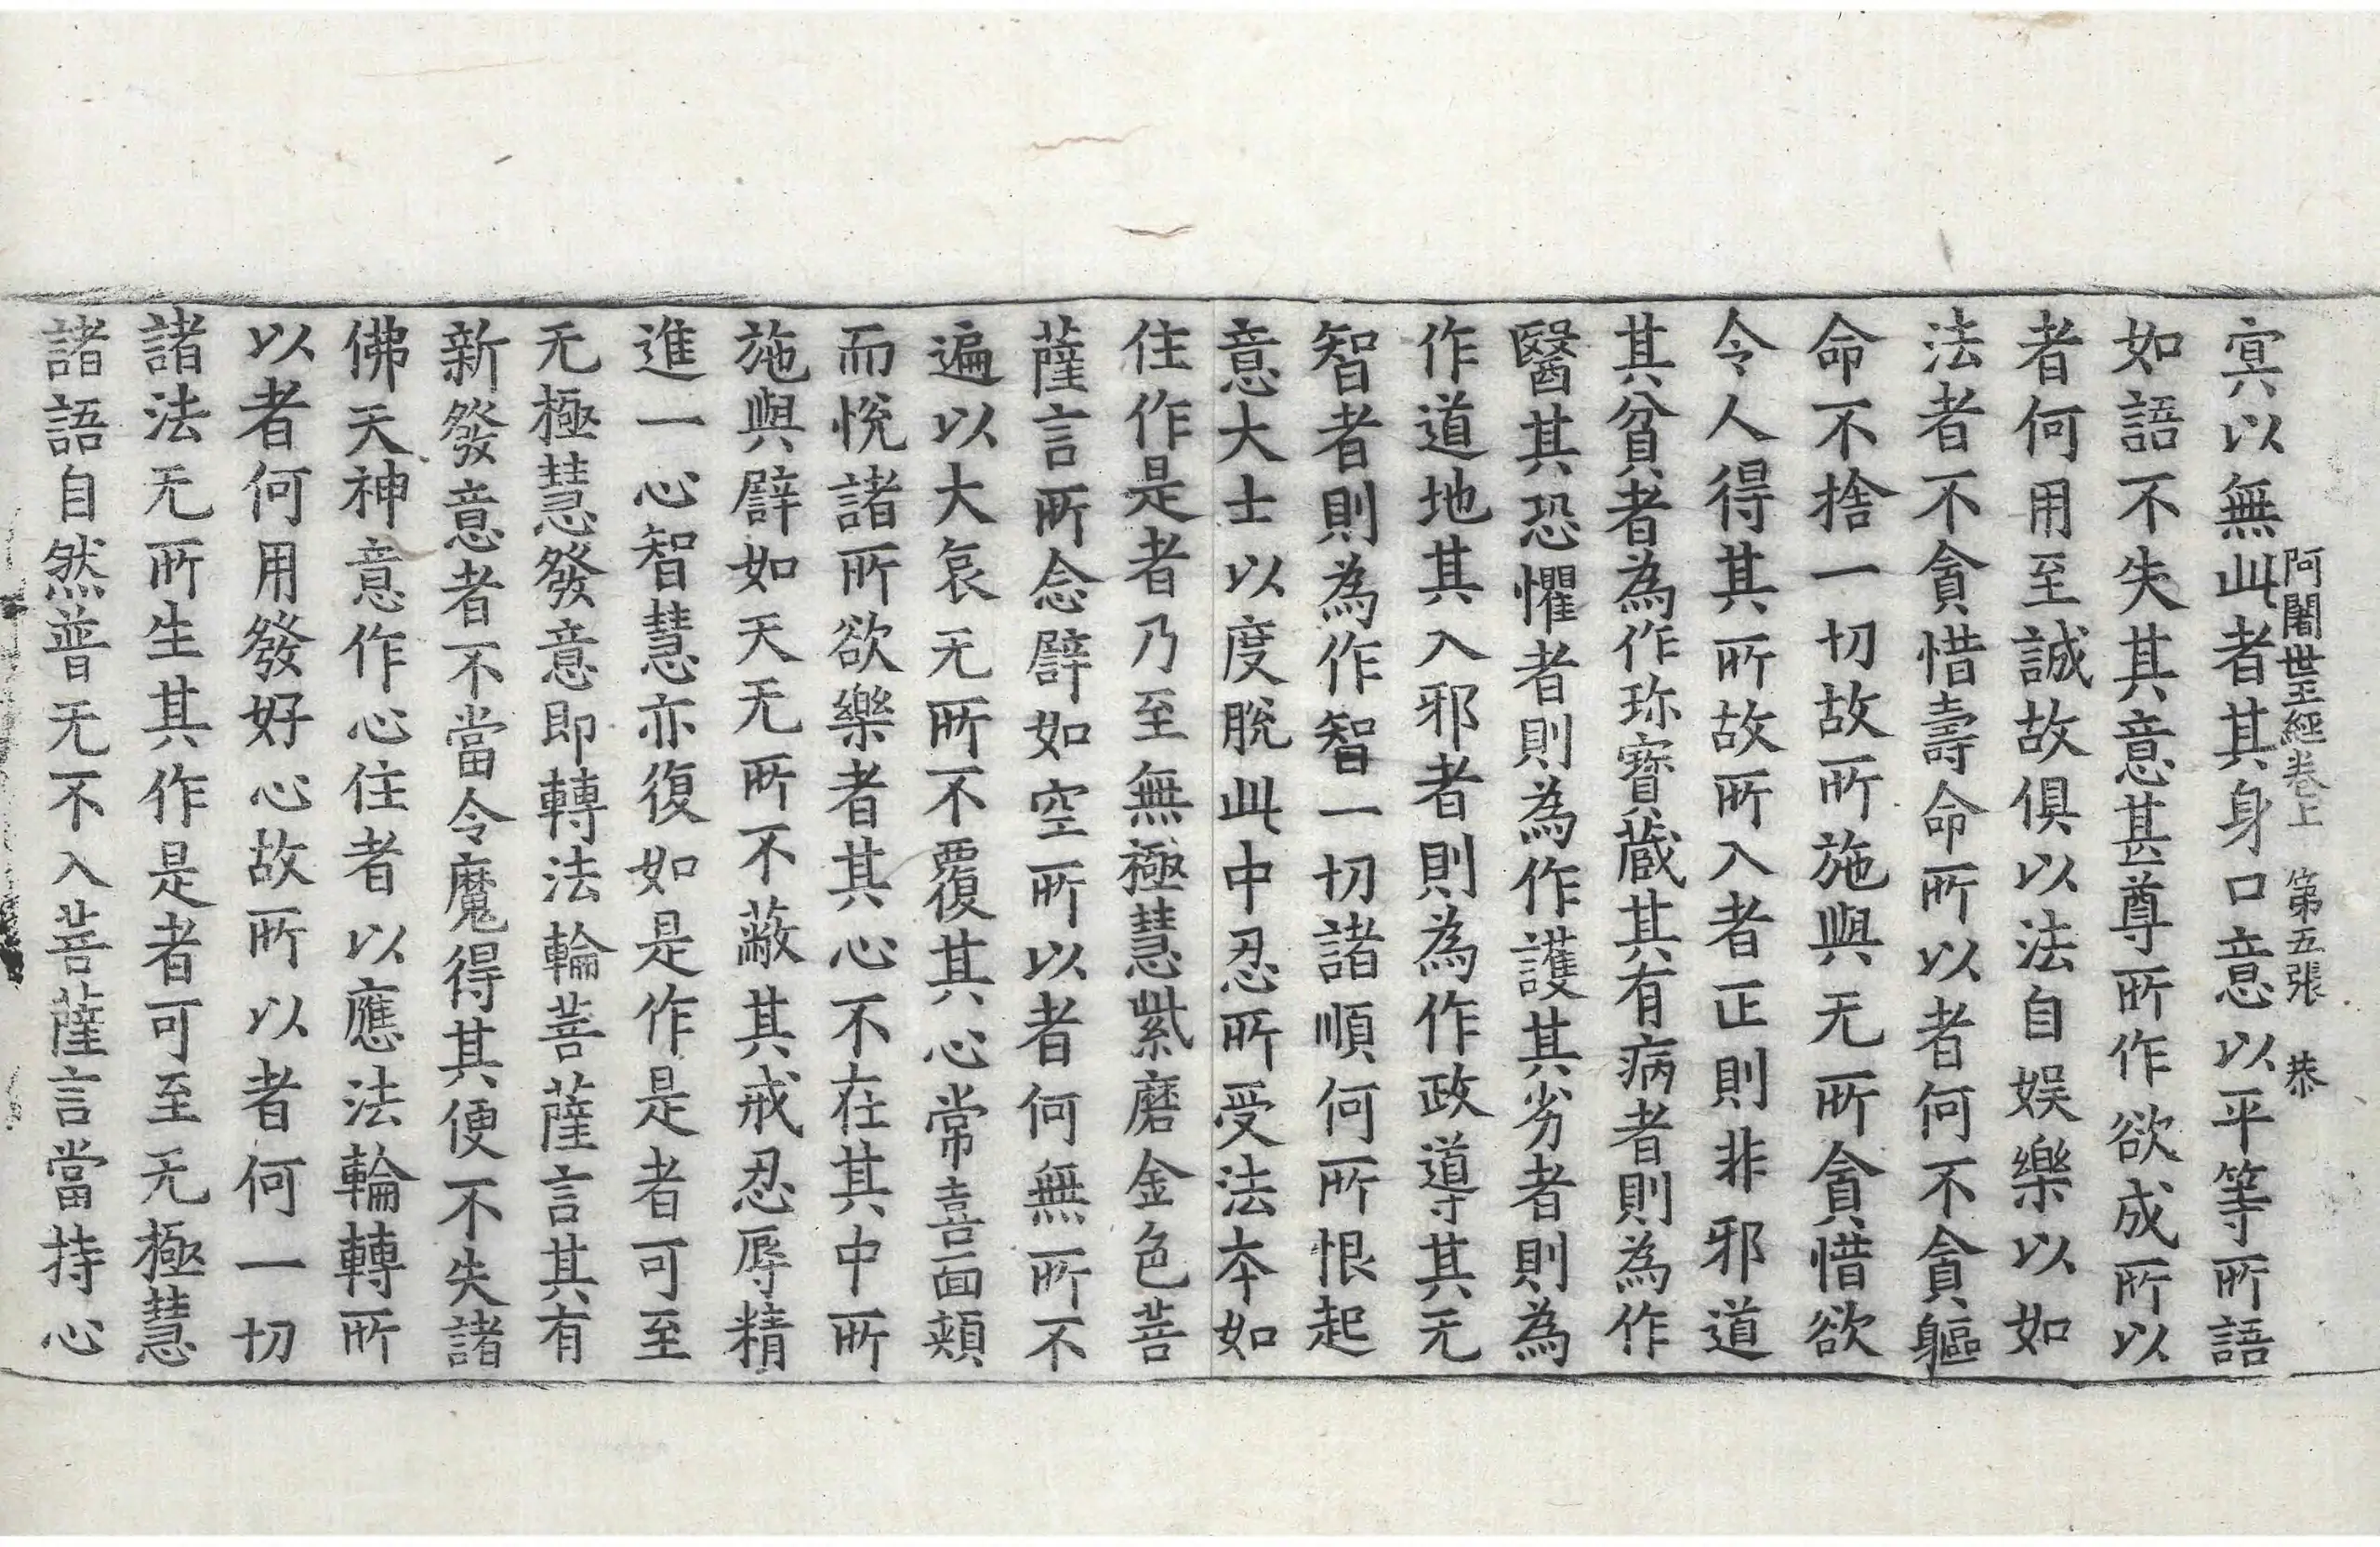 阿闍世王經卷上　第五張　恭
㝠以無此者其身口意以平等所語
如語不失其意甚尊所作欲成所以
者何用至誠故俱以法自娛樂以如
法者不貪惜壽命所以者何不貪軀
命不捨一切故所施與无所貪惜欲
令人得其所故所入者正則非邪道
其貧者為作珎寶藏其有病者則為作
醫其恐懼者則為作護其劣者則為
作道地其入邪者則為作政導其无
智者則為作智一切諸順何所恨起
意大士以度脫此中忍所受法本如
住作是者乃至無極慧紫磨金色菩
薩言所念譬如空所以者何無所不
遍以大哀无所不覆其心常喜面頰
而悅諸所欲樂者其心不在其中所
施與譬如天无所不蔽其戒忍辱精
進一心智慧亦復如是作是者可至
无極慧發意即轉法輪菩薩言其有
新發意者不當令魔得其便不失諸
佛天神意作心住者以應法輪轉所
以者何用發好心故所以者何一切
諸法无所生其作是者可至无極慧
諸語自然普无不入菩薩言當持心